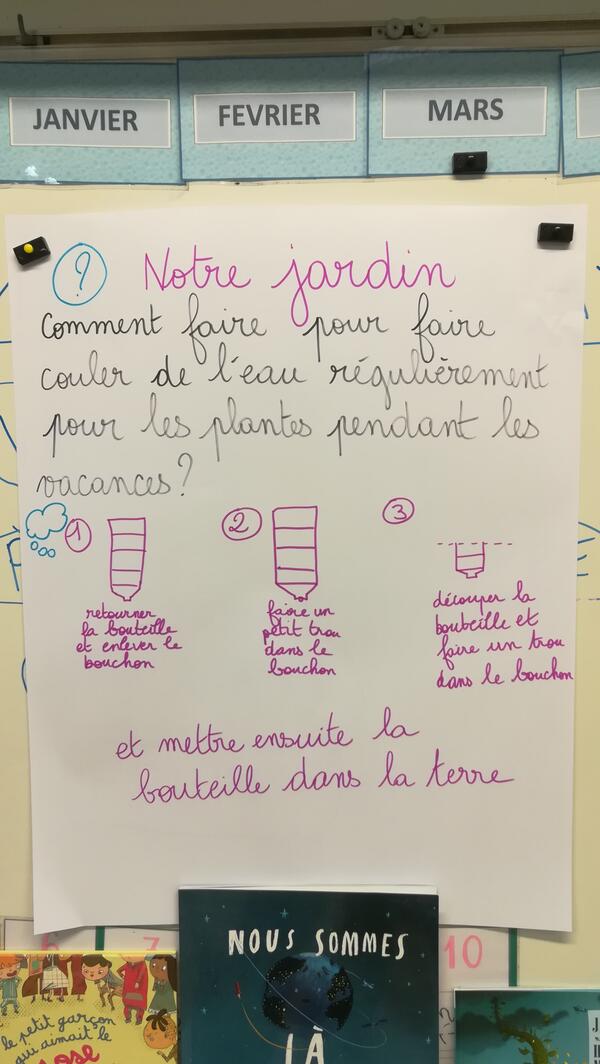 JANVIER
FEVRIER
MARS
? Notre jardin
Comment faire pour faire
couler de l'eau régulièrement
pour les plantes pendant les
vacances?
1
retourner
la bouteille
et enlever le
bouchon
2
faire un
petit trou
dans le
bouchon
3
découper la
bouteille et
faire un trou
dans le bouchon
et mettre ensuite la
bouteille dans la terre
7
10
NOUS SOMMES
LÀ
le petit garçon
qui aimait le
rose